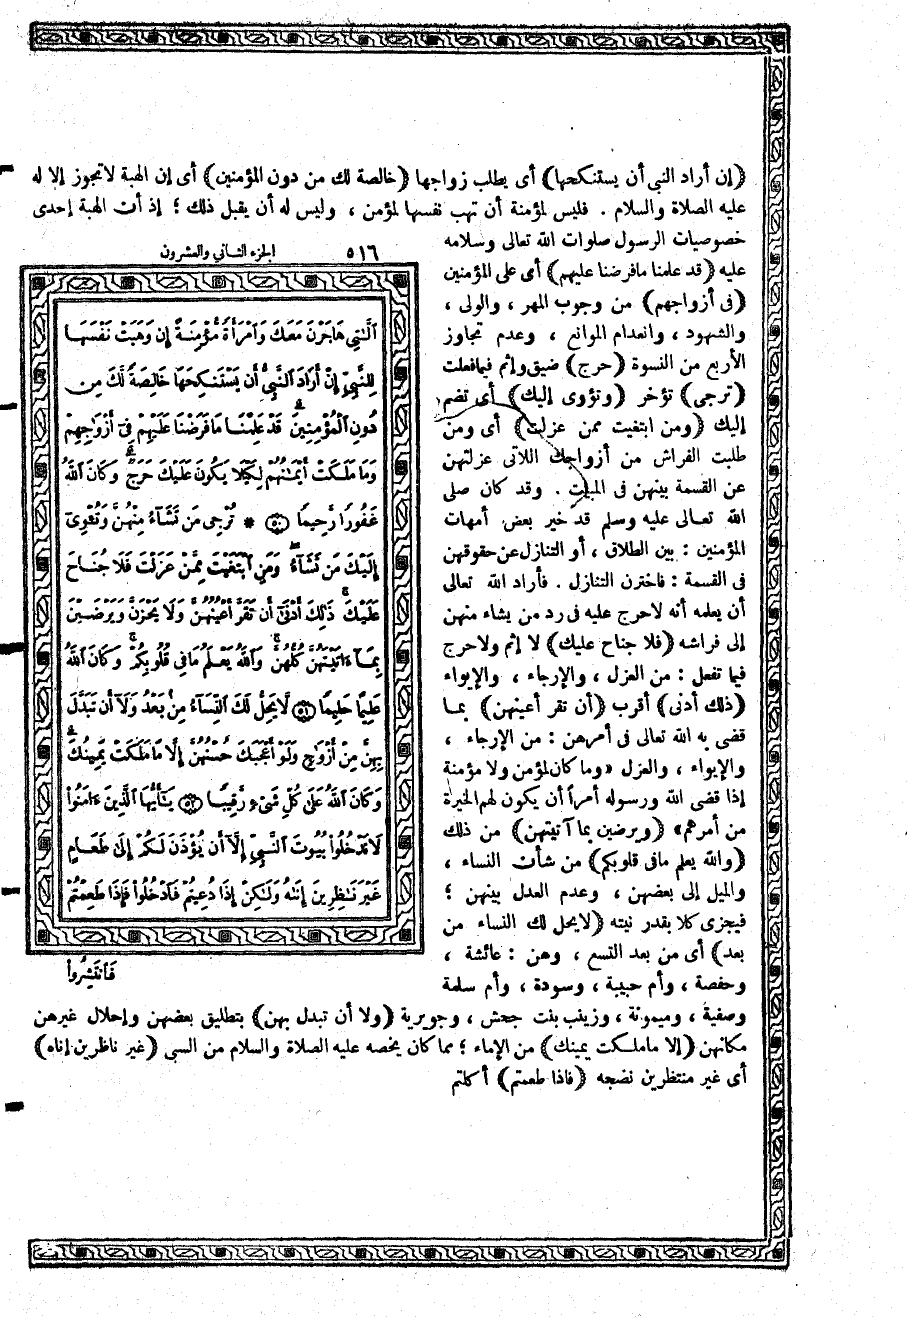 (إن أراد النبي أن يستنكحها) أى يطلب زواجها (خالصة لك من دون المؤمنين) أى إن الهبة لاتجوز إلا له
عليه الصلاة والسلام . فليس لمؤمنة أن تهب نفسها لمؤمن ، وليس له أن يقبل ذلك ؛ إذ أن الهبة إحدى
خصوصيات الرسول صلوات الله تعالى وسلامه
عليه (قد علمنا مافرضنا عليهم) أى على المؤمنين
(فى أزواجهم) من وجوب المهر ، والولى ،
والشهود ، وانعدام الموانع ، وعدم تجاوز
الأربع من النسوة (حرج) ضيق وإثم فيما فعلت
(ترجى) تؤخر (وتؤوى إليك) أى تضم
إليك (ومن ابتغيت ممن عزلت) أى ومن
طلبت الفراش من أزواجك اللاتى عزلتهن
عن القسمة بينهن فى المبيت . وقد كان صلى
الله تعالى عليه وسلم قد خير بعض أمهات
المؤمنين : بين الطلاق ، أو التنازل عن حقوقهن
فى القسمة : فاخترن التنازل . فأراد الله تعالى
أن يعلمه أنه لاحرج عليه فى رد من يشاء منهن
إلى فراشه (فلا جناح عليك) لا إثم ولاحرج
فيما تفعل : من العزل ، والإرجاء ، والإيواء
(ذلك أدنى) أقرب (أن تقر أعينهن) بما
قضى به الله تعالى فى أمرهن : من الإرجاء ،
والإيواء ، والعزل «وما كان لمؤمن ولا مؤمنة
إذا قضى الله ورسوله أمراً أن يكون لهم الخيرة
من أمرهم» (ويرضين بما آتيتهن) من ذلك
(والله يعلم مافى قلوبكم) من شأن النساء ،
والميل إلى بعضهن ، وعدم العدل بينهن ؛
فيجزى كلا بقدر نيته (لايحل لك النساء من
بعد) أى من بعد التسع ، وهن : عائشة ،
وحفصة ، وأم حبيبة ، وسودة ، وأم سلمة
وصفية ، وميمونة ، وزينب بنت جحش ، وجويرية (ولا أن تبدل بهن) بتطليق بعضهن وإحلال غيرهن
مكانهن (إلا ماملكت يمينك) من الإماء ؛ مما كان يخصه عليه الصلاة والسلام من السبى (غير ناظرين إناه)
أى غير منتظرين نضجه (فاذا طعمتم) أكلتم
٥١٦ الجزء الثاني والعشرون
اَلَّتِى هَاجَرْنَ مَعَكَ وَامْرَأَةً مُّؤْمِنَةً إِن وَهَبَتْ نَفْسَهَا
لِلنَّبِىِّ إِنْ أَرَادَ النَّبِىُّ أَن يَسْتَنكِحَهَا خَالِصَةً لَّكَ مِن
دُونِ الْمُؤْمِنِينَ قَدْ عَلِمْنَا مَا فَرَضْنَا عَلَيْهِمْ فِى أَزْوَٰجِهِمْ
وَمَا مَلَكَتْ أَيْمَٰنُهُمْ لِكَيْلَا يَكُونَ عَلَيْكَ حَرَجٌ وَكَانَ اللَّهُ
غَفُورًا رَّحِيمًا (٥٠) * تُرْجِى مَن تَشَآءُ مِنْهُنَّ وَتُـْٔوِىٓ
إِلَيْكَ مَن تَشَآءُ وَمَنِ ابْتَغَيْتَ مِمَّنْ عَزَلْتَ فَلَا جُنَاحَ
عَلَيْكَ ذَٰلِكَ أَدْنَىٰٓ أَن تَقَرَّ أَعْيُنُهُنَّ وَلَا يَحْزَنَّ وَيَرْضَيْنَ
بِمَآ ءَاتَيْتَهُنَّ كُلُّهُنَّ وَاللَّهُ يَعْلَمُ مَا فِى قُلُوبِكُمْ وَكَانَ اللَّهُ
عَلِيمًا حَلِيمًا (٥١) لَّا يَحِلُّ لَكَ النِّسَآءُ مِنۢ بَعْدُ وَلَآ أَن تَبَدَّلَ
بِهِنَّ مِنْ أَزْوَٰجٍ وَلَوْ أَعْجَبَكَ حُسْنُهُنَّ إِلَّا مَا مَلَكَتْ يَمِينُكَ
وَكَانَ اللَّهُ عَلَىٰ كُلِّ شَىْءٍ رَّقِيبًا (٥٢) يَٰٓأَيُّهَا الَّذِينَ ءَامَنُوا۟
لَا تَدْخُلُوا۟ بُيُوتَ النَّبِىِّ إِلَّآ أَن يُؤْذَنَ لَكُمْ إِلَىٰ طَعَامٍ
غَيْرَ نَٰظِرِينَ إِنَىٰهُ وَلَٰكِنْ إِذَا دُعِيتُمْ فَادْخُلُوا۟ فَإِذَا طَعِمْتُمْ
فَانتَشِرُوا۟